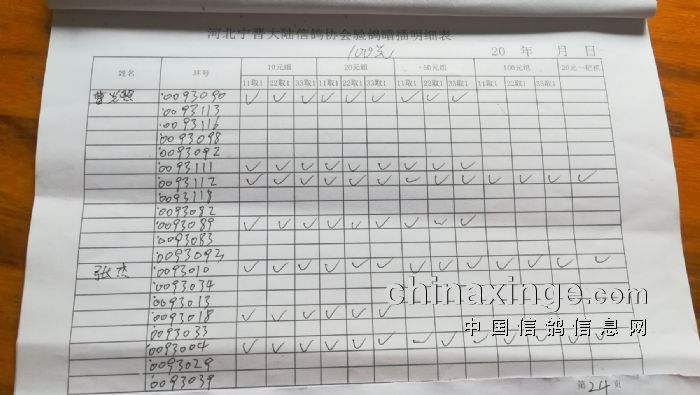 河北宁晋大陆信鸽协会验鸽暗插明细表
100元 20 年 月 日
姓名 环号 10元组 20元组 50元组 100元组 20元一把抓
11取1 22取1 33取1 11取1 22取1 33取1 11取1 22取1 33取1 11取1 22取1 33取1
0093090 ✓ ✓ ✓ ✓ ✓ ✓ ✓ ✓ ✓
0093113
0093116
0093098
0093092
0093111 ✓ ✓ ✓ ✓ ✓ ✓ ✓ ✓ ✓
0093112 ✓ ✓ ✓ ✓ ✓ ✓ ✓ ✓ ✓ ✓ ✓ ✓ ✓
0093118
0093082
0093089 ✓ ✓ ✓ ✓ ✓ ✓ ✓ ✓ ✓
0093083
0093093
张杰 0093010 ✓ ✓ ✓ ✓ ✓ ✓ ✓ ✓ ✓ ✓ ✓ ✓ ✓
0093034
0093013
0093018 ✓ ✓ ✓ ✓ ✓ ✓
0093033
0093004 ✓ ✓ ✓ ✓ ✓ ✓ ✓ ✓ ✓ ✓ ✓ ✓ ✓
0093029
0093039
第24页
chinaxinge.com
中国信鸽信息网